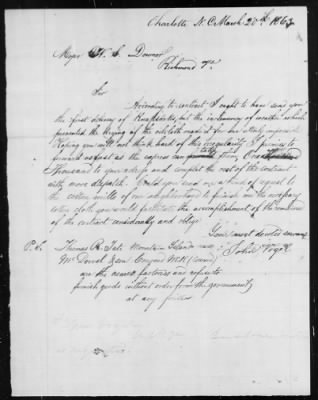 Charlotte N.C. March 20th 1863
Major W. S. Downer
Richmond Va.
Sir
According to contract I ought to have send you
the first delivery of Knapsacks, but the inclemency of weather which
prevented the drying of the oilcloth made it for me utterly impossible
Hoping you will not think hard of this irregularity I promise to
forward as fast as the express can carry them One
Thousand to your address and complete the rest of the contract
with more dispatch. Would you send me an order of request to
the cotton mills of our neighborhood to furnish me the necessary
cotton cloth you would facilitate the accomplishment of the remainder
of the contract considerably and oblige
Your most devoted servant
John Vogel
P.S. Thomas R. Tate Mountain Island and
McDowell
are the nearest factories and refuse to
furnish goods without order from the government
at any price